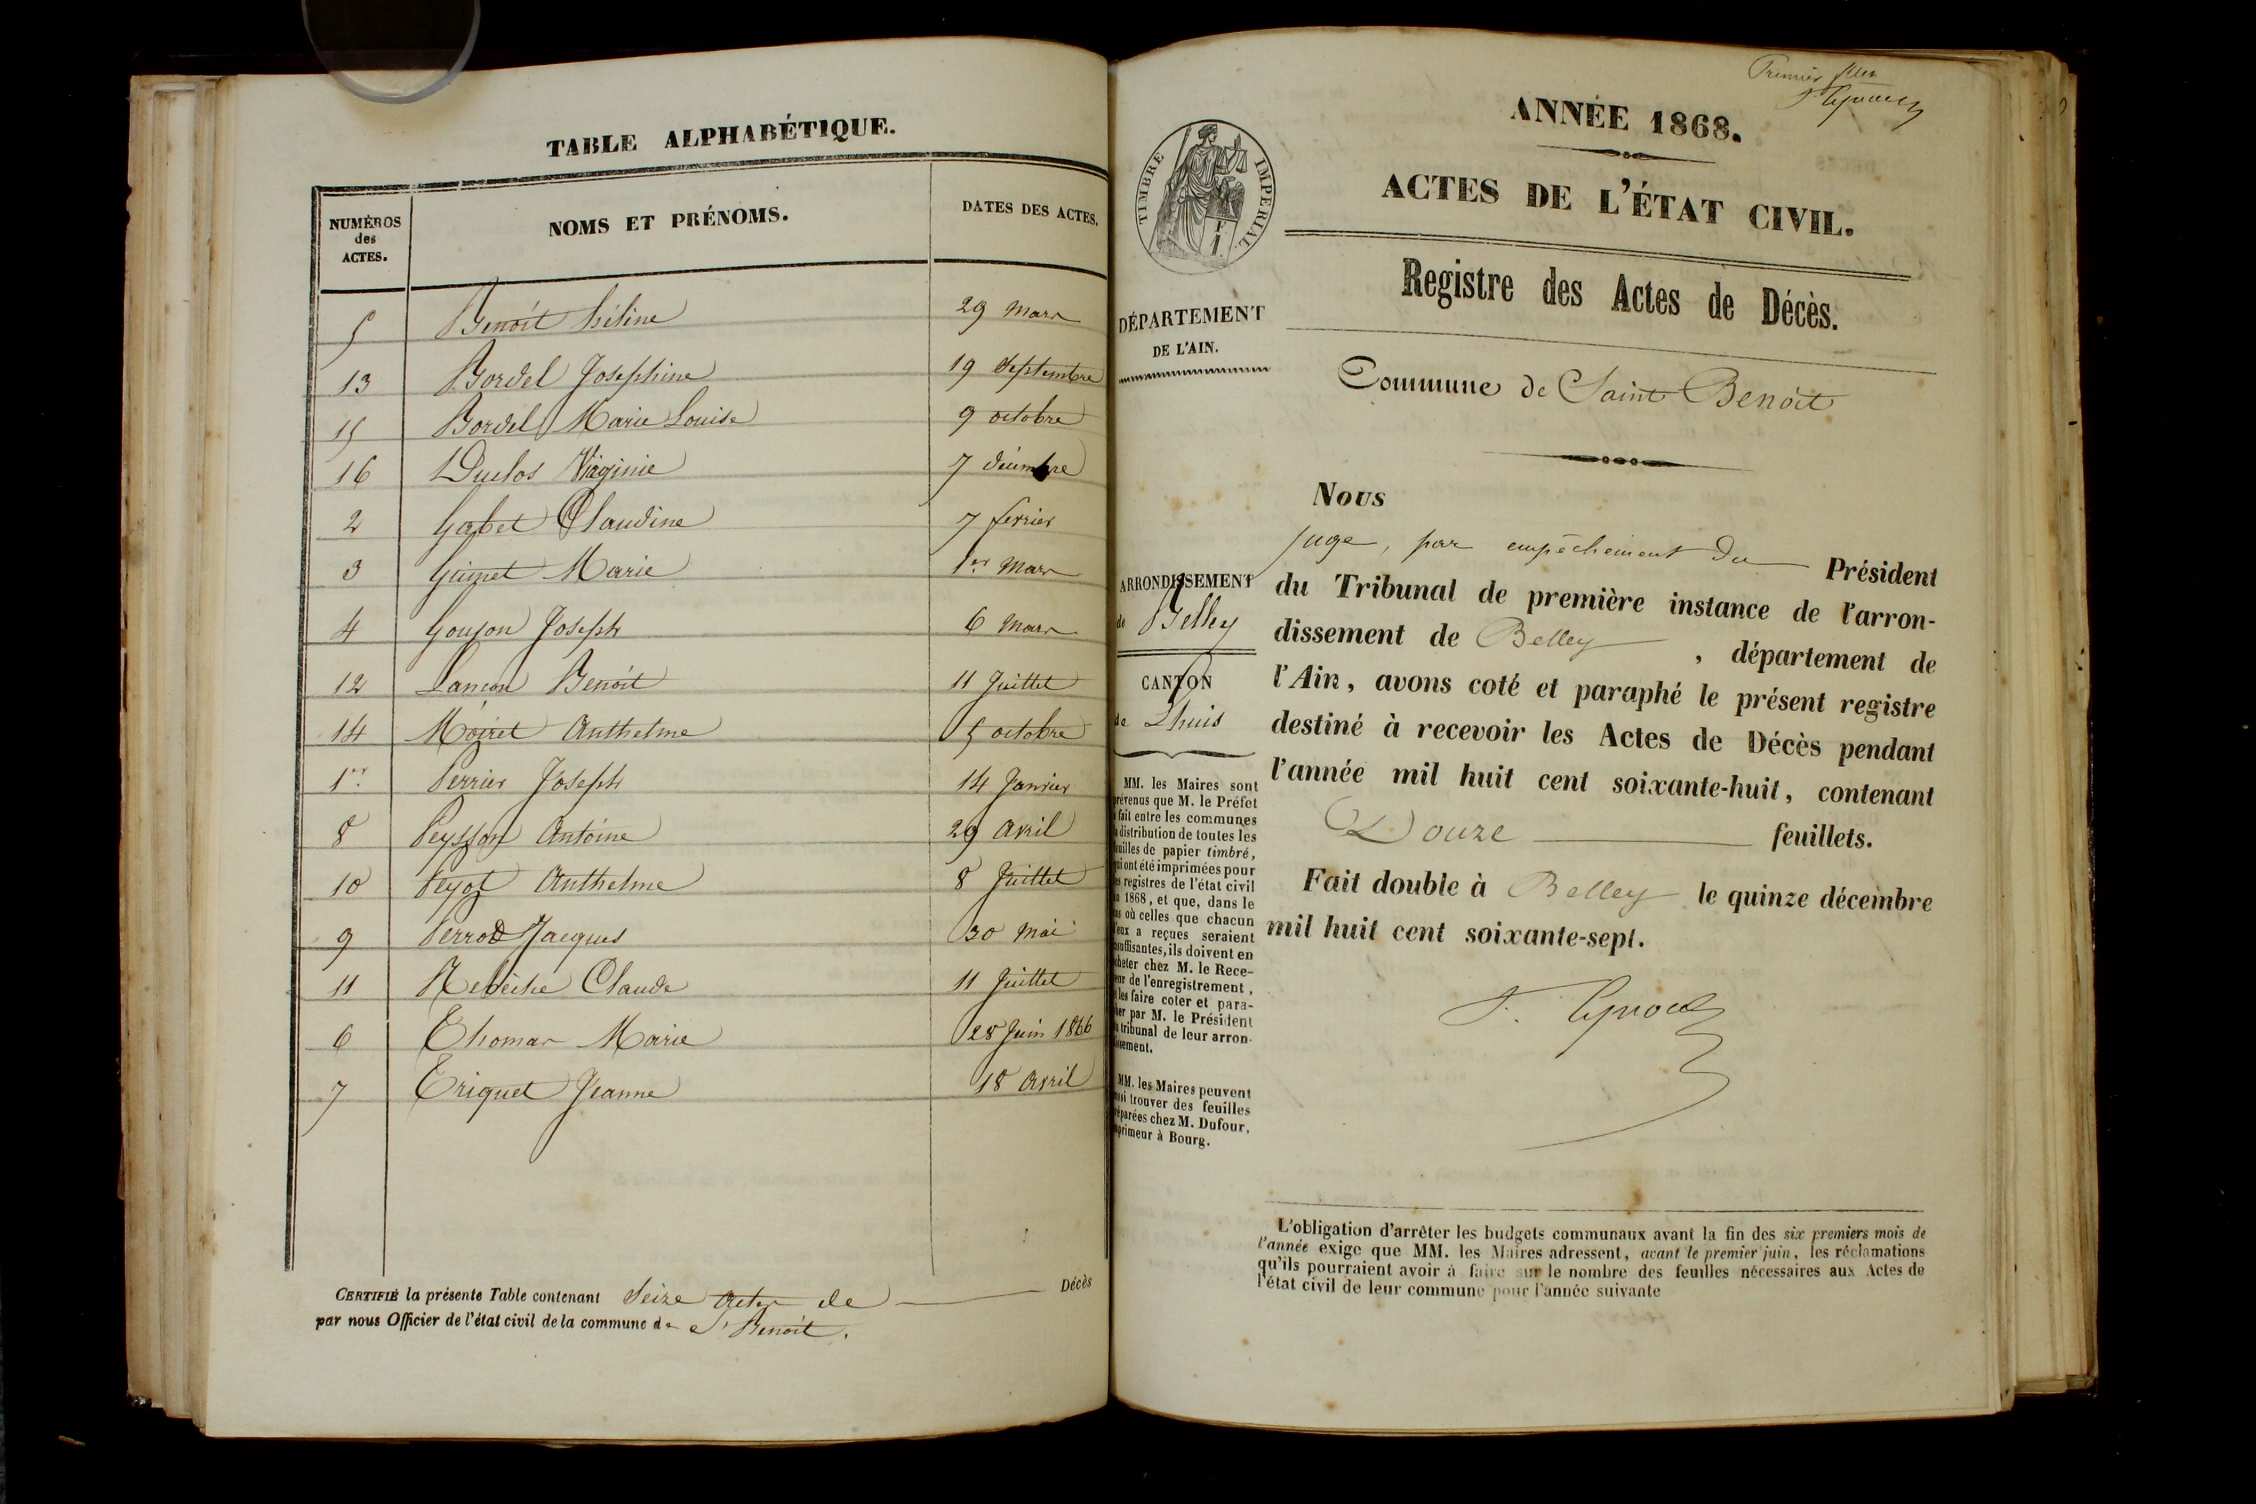 TABLE ALPHABÉTIQUE.
NUMÉROS
des
ACTES.
NOMS ET PRÉNOMS.
DATES DES ACTES.
5 Benoit hélène 29 Mars
13 Bordel Joséphine 19 Septembre
15 Bordel Marie Louise 9 octobre
16 Duclos Virginie 7 décembre
2 Gabet Claudine 7 fevrier
3 Guinet Marie 1er Mars
4 Goujon Joseph 6 Mars
12 Lançon Benoit 11 Juillet
14 Moiret Anthelme 5 octobre
1er Perrier Joseph 14 Janvier
8 Peysson Antoine 29 Avril
10 Anthelme 8 Juillet
9 Perrod Jacques 30 Mai
11 Claude 11 Juillet
6 Thomas Marie 28 Juin 1866
7 Triquet Jeanne 18 Avril
CERTIFIÉ la présente Table contenant Seize actes de Décès
par nous Officier de l'état civil de la commune de St Benoit.
Premier
ANNÉE 1868.
TIMBRE IMPÉRIAL
ACTES DE L'ÉTAT CIVIL.
Registre des Actes de Décès.
DÉPARTEMENT
DE L'AIN.
Commune de Saint Benoit
Nous
juge, par empêchement du Président
du Tribunal de première instance de l'arron-
dissement de Belley, département de
l'Ain, avons coté et paraphé le présent registre
destiné à recevoir les Actes de Décès pendant
l'année mil huit cent soixante-huit, contenant
Douze feuillets.
Fait double à Belley le quinze décembre
mil huit cent soixante-sept.
ARRONDISSEMENT
de Belley
CANTON
de Lhuis
MM. les Maires sont
prévenus que M. le Préfet
a fait entre les communes
la distribution de toutes les
feuilles de papier timbré,
qui ont été imprimées pour
les registres de l'état civil
en 1868, et que, dans le
cas où celles que chacun
d'eux a reçues seraient
insuffisantes, ils doivent en
acheter chez M. le Rece-
veur de l'enregistrement,
et les faire coter et para-
pher par M. le Président
du tribunal de leur arron-
dissement.
MM. les Maires peuvent
aussi trouver des feuilles
préparées chez M. Dufour,
imprimeur à Bourg.
L'obligation d'arrêter les budgets communaux avant la fin des six premiers mois de
l'année exige que MM. les Maires adressent, avant le premier juin, les réclamations
qu'ils pourraient avoir à faire sur le nombre des feuilles nécessaires aux Actes de
l'état civil de leur commune pour l'année suivante